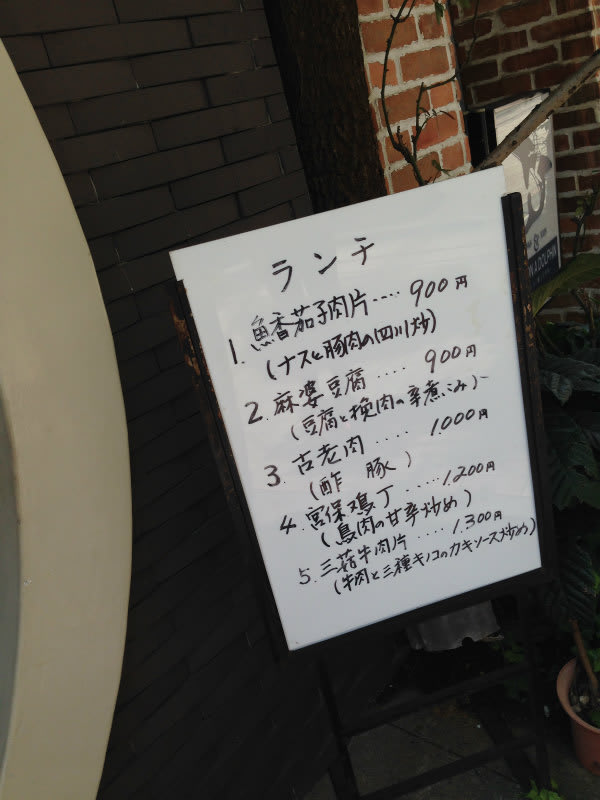 ランチ
1. 魚香茄子肉片 ‥‥ 900円
(ナスと豚肉の四川炒)
2. 麻婆豆腐 ‥‥ 900円
(豆腐と挽肉の辛煮こみ)
3. 古老肉 ‥‥ 1,000円
(酢豚)
4. 宮保鶏丁 ‥‥‥ 1,200円
(鳥肉の甘辛炒め)
5. 三菇牛肉片 ‥‥ 1,300円
(牛肉と三種キノコのカキソース炒め)
&
DOLPHIN